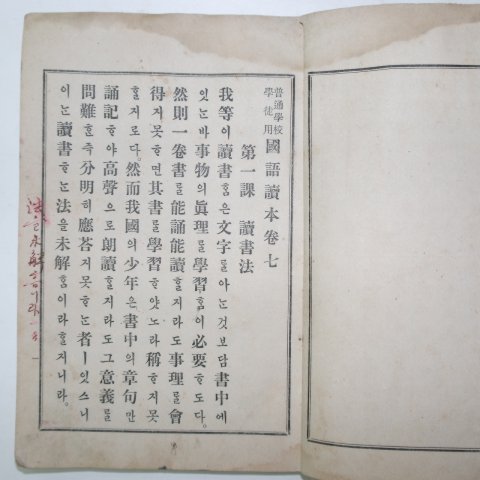 普通學校
學徒用 國語讀本卷七
第一課 讀書法
我等이讀書홈은文字를아는것보담書中에
잇는바事物의眞理를學習홈이必要ᄒᆞ도다。
然則一卷書를能誦能讀ᄒᆞᆯ지라도事理를會
得지못ᄒᆞ면其書를學習ᄒᆞ얏노라稱ᄒᆞ지못
ᄒᆞᆯ지로다。然而我國의少年은書中의章句만
誦記ᄒᆞ야高聲으로朗讀ᄒᆞᆯ지라도그意義를
問難ᄒᆞᆫ즉分明히應答지못ᄒᆞᄂᆞᆫ者ㅣ잇스니
이ᄂᆞᆫ讀書ᄒᆞᄂᆞᆫ法을未解홈이라ᄒᆞᆯ지니라。
法을未解홈이라